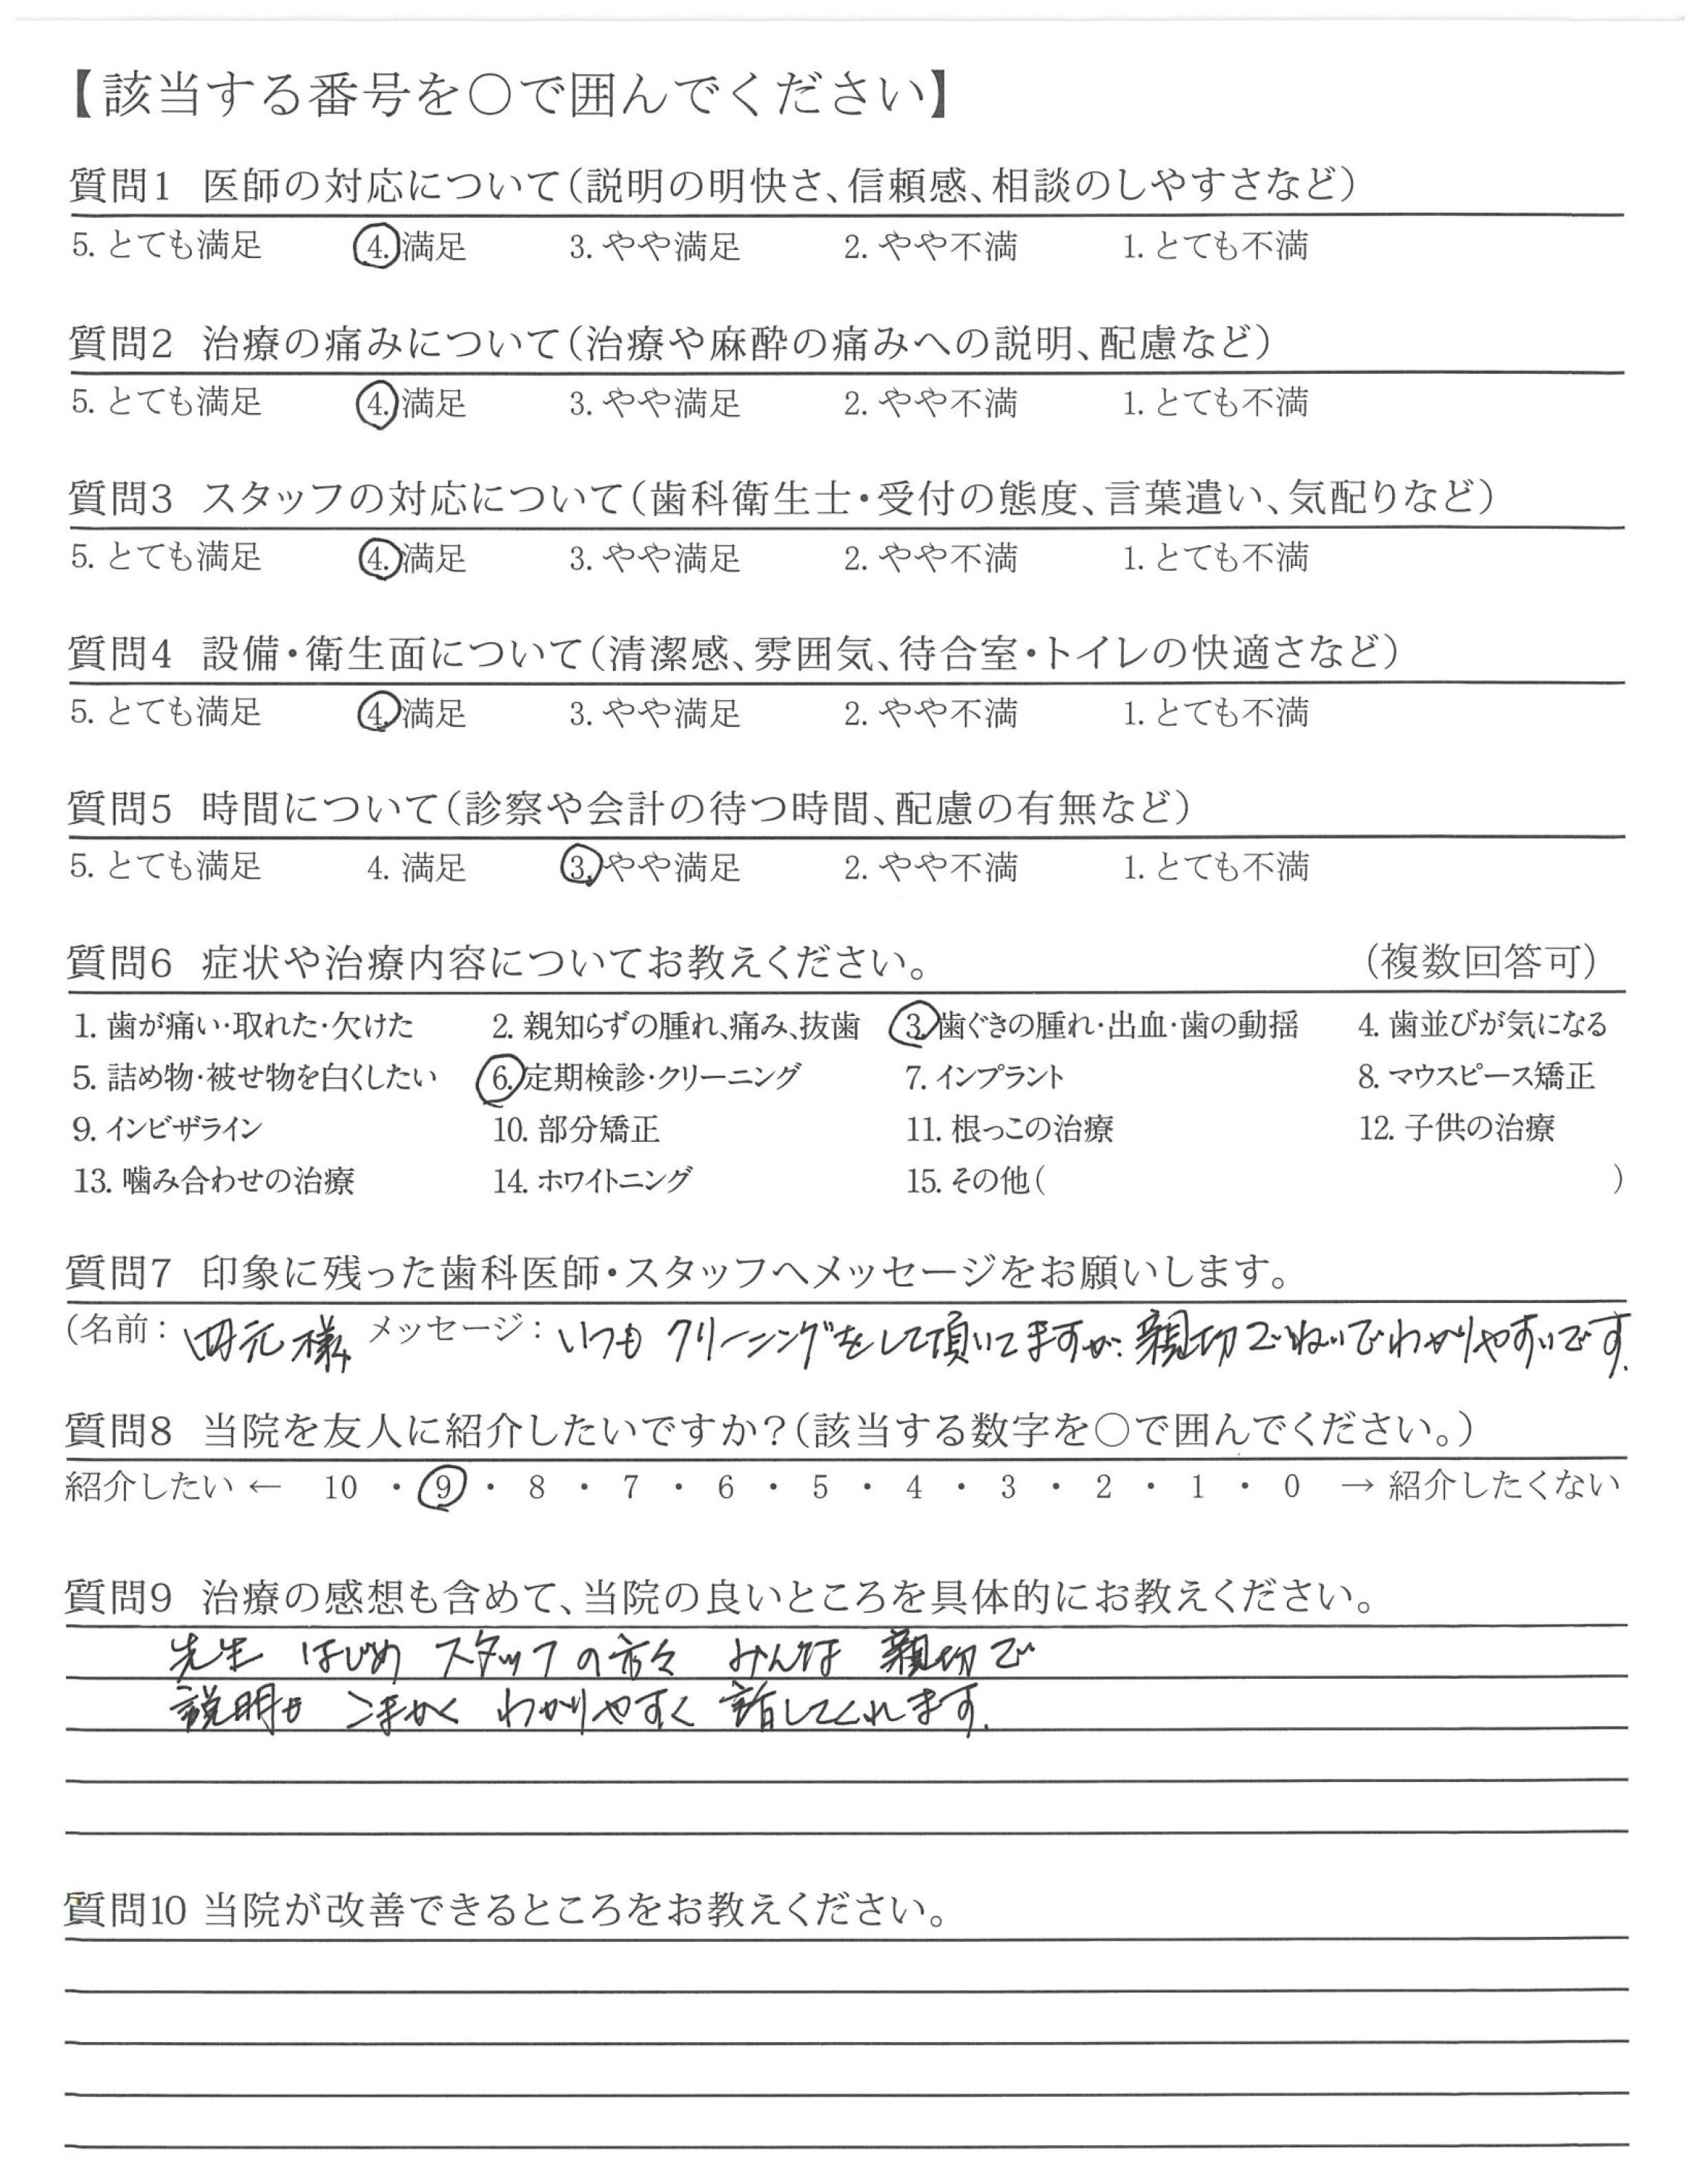 【該当する番号を○で囲んでください】
質問1 医師の対応について(説明の明快さ、信頼感、相談のしやすさなど)
5. とても満足 4. 満足 3. やや満足 2. やや不満 1. とても不満
質問2 治療の痛みについて(治療や麻酔の痛みへの説明、配慮など)
5. とても満足 4. 満足 3. やや満足 2. やや不満 1. とても不満
質問3 スタッフの対応について(歯科衛生士・受付の態度、言葉遣い、気配りなど)
5. とても満足 4. 満足 3. やや満足 2. やや不満 1. とても不満
質問4 設備・衛生面について(清潔感、雰囲気、待合室・トイレの快適さなど)
5. とても満足 4. 満足 3. やや満足 2. やや不満 1. とても不満
質問5 時間について(診察や会計の待つ時間、配慮の有無など)
5. とても満足 4. 満足 3. やや満足 2. やや不満 1. とても不満
質問6 症状や治療内容についてお教えください。 (複数回答可)
1. 歯が痛い・取れた・欠けた 2. 親知らずの腫れ、痛み、抜歯 3. 歯ぐきの腫れ・出血・歯の動揺 4. 歯並びが気になる
5. 詰め物・被せ物を白くしたい 6. 定期検診・クリーニング 7. インプラント 8. マウスピース矯正
9. インビザライン 10. 部分矯正 11. 根っこの治療 12. 子供の治療
13. 噛み合わせの治療 14. ホワイトニング 15. その他( )
質問7 印象に残った歯科医師・スタッフへメッセージをお願いします。
(名前: 元様 メッセージ: いつもクリーニングをして頂いてますが、親切でわかりやすいです。
質問8 当院を友人に紹介したいですか?(該当する数字を○で囲んでください。)
紹介したい ← 10 ・ 9 ・ 8 ・ 7 ・ 6 ・ 5 ・ 4 ・ 3 ・ 2 ・ 1 ・ 0 → 紹介したくない
質問9 治療の感想も含めて、当院の良いところを具体的にお教えください。
先生 はじめ スタッフの方々 みんな 親切で
説明も こまかく わかりやすく 話してくれます。
質問10 当院が改善できるところをお教えください。